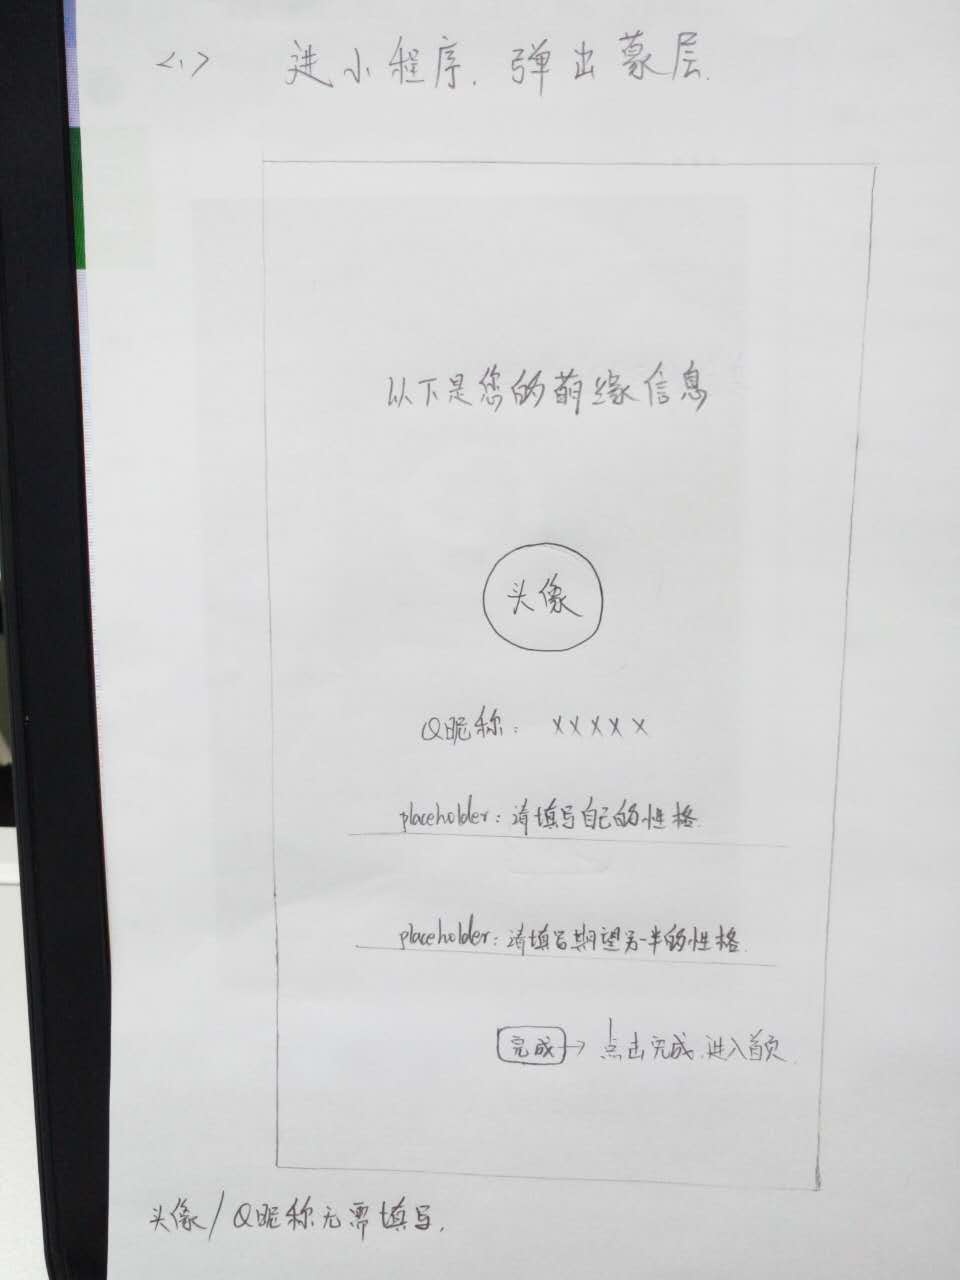 <1> 进小程序. 弹出蒙层.
以下是您的萌缘信息
头像
Q昵称: xxxxx
placeholder: 请填写自己的性格.
placeholder: 请填写期望另一半的性格.
完成 → 点击完成.进入首页.
头像/Q昵称无需填写.